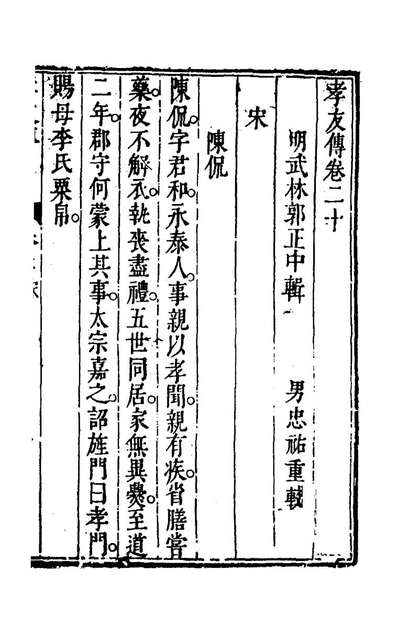 孝友傳卷二十
明武林郭正中輯　男忠祐重較
宋
陳侃
陳侃。字君和。永泰人。事親以孝聞。親有疾。省膳嘗
藥。夜不解衣。執喪盡禮。五世同居。家無異爨。至道
二年。郡守何蒙上其事。太宗嘉之。詔旌門曰孝門。
賜母李氏粟帛。